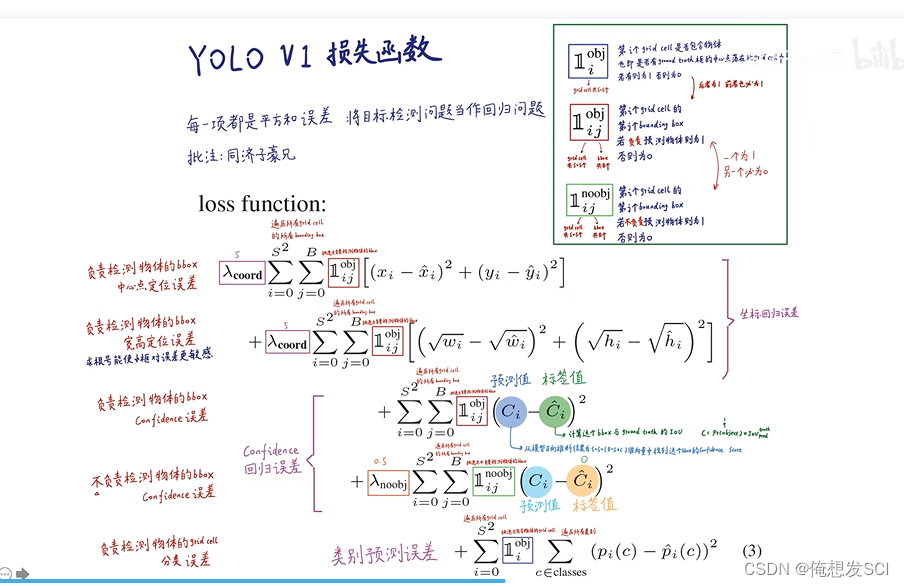 YOLO V1 损失函数
每一项都是平方和误差 将目标检测问题当作回归问题
批注:同济子豪兄
𝟙 obj i
grid cell 共S×S个
第i个grid cell是否包含物体
也即是否有ground truth框的中心点落在此grid cell中
若有则为1 否则为0
后者为1 前者也必为1
𝟙 obj ij
grid cell 共S×S个
bbox 共B个
第i个grid cell的
第j个bounding box
若负责预测物体则为1
否则为0
一个为1
另一个必为0
𝟙 noobj ij
grid cell 共S×S个
bbox 共B个
第i个grid cell的
第j个bounding box
若不负责预测物体则为1
否则为0
bilib
loss function:
遍历所有grid cell
的所有bounding box
负责检测物体的bbox
中心点定位误差
5
λcoord ∑_{i=0}^{S²} ∑_{j=0}^{B} 𝟙_{ij}^{obj} [(x_i − x̂_i)² + (y_i − ŷ_i)²]
遍历所有grid cell
的所有bounding box
负责检测物体的bbox
宽高定位误差
求根号能使小框对误差更敏感
5
+ λcoord ∑_{i=0}^{S²} ∑_{j=0}^{B} 𝟙_{ij}^{obj} [(√w_i − √ŵ_i)² + (√h_i − √ĥ_i)²]
坐标回归误差
遍历所有grid cell
的所有bounding box
预测值 标签值
负责检测物体的bbox
Confidence 误差
+ ∑_{i=0}^{S²} ∑_{j=0}^{B} 𝟙_{ij}^{obj} (C_i − Ĉ_i)²
计算这个bbox与ground truth的IoU
C = Pr(object) × IoU truth pred
Confidence
回归误差
遍历所有grid cell
的所有bounding box
不负责检测物体的bbox
Confidence 误差
0.5
0
+ λnoobj ∑_{i=0}^{S²} ∑_{j=0}^{B} 𝟙_{ij}^{noobj} (C_i − Ĉ_i)²
预测值 标签值
遍历所有grid cell
遍历所有类别
负责检测物体的grid cell
分类误差
类别预测误差
+ ∑_{i=0}^{S²} 𝟙_{i}^{obj} ∑_{c∈classes} (p_i(c) − p̂_i(c))² (3)
CSDN @俺想发SCI